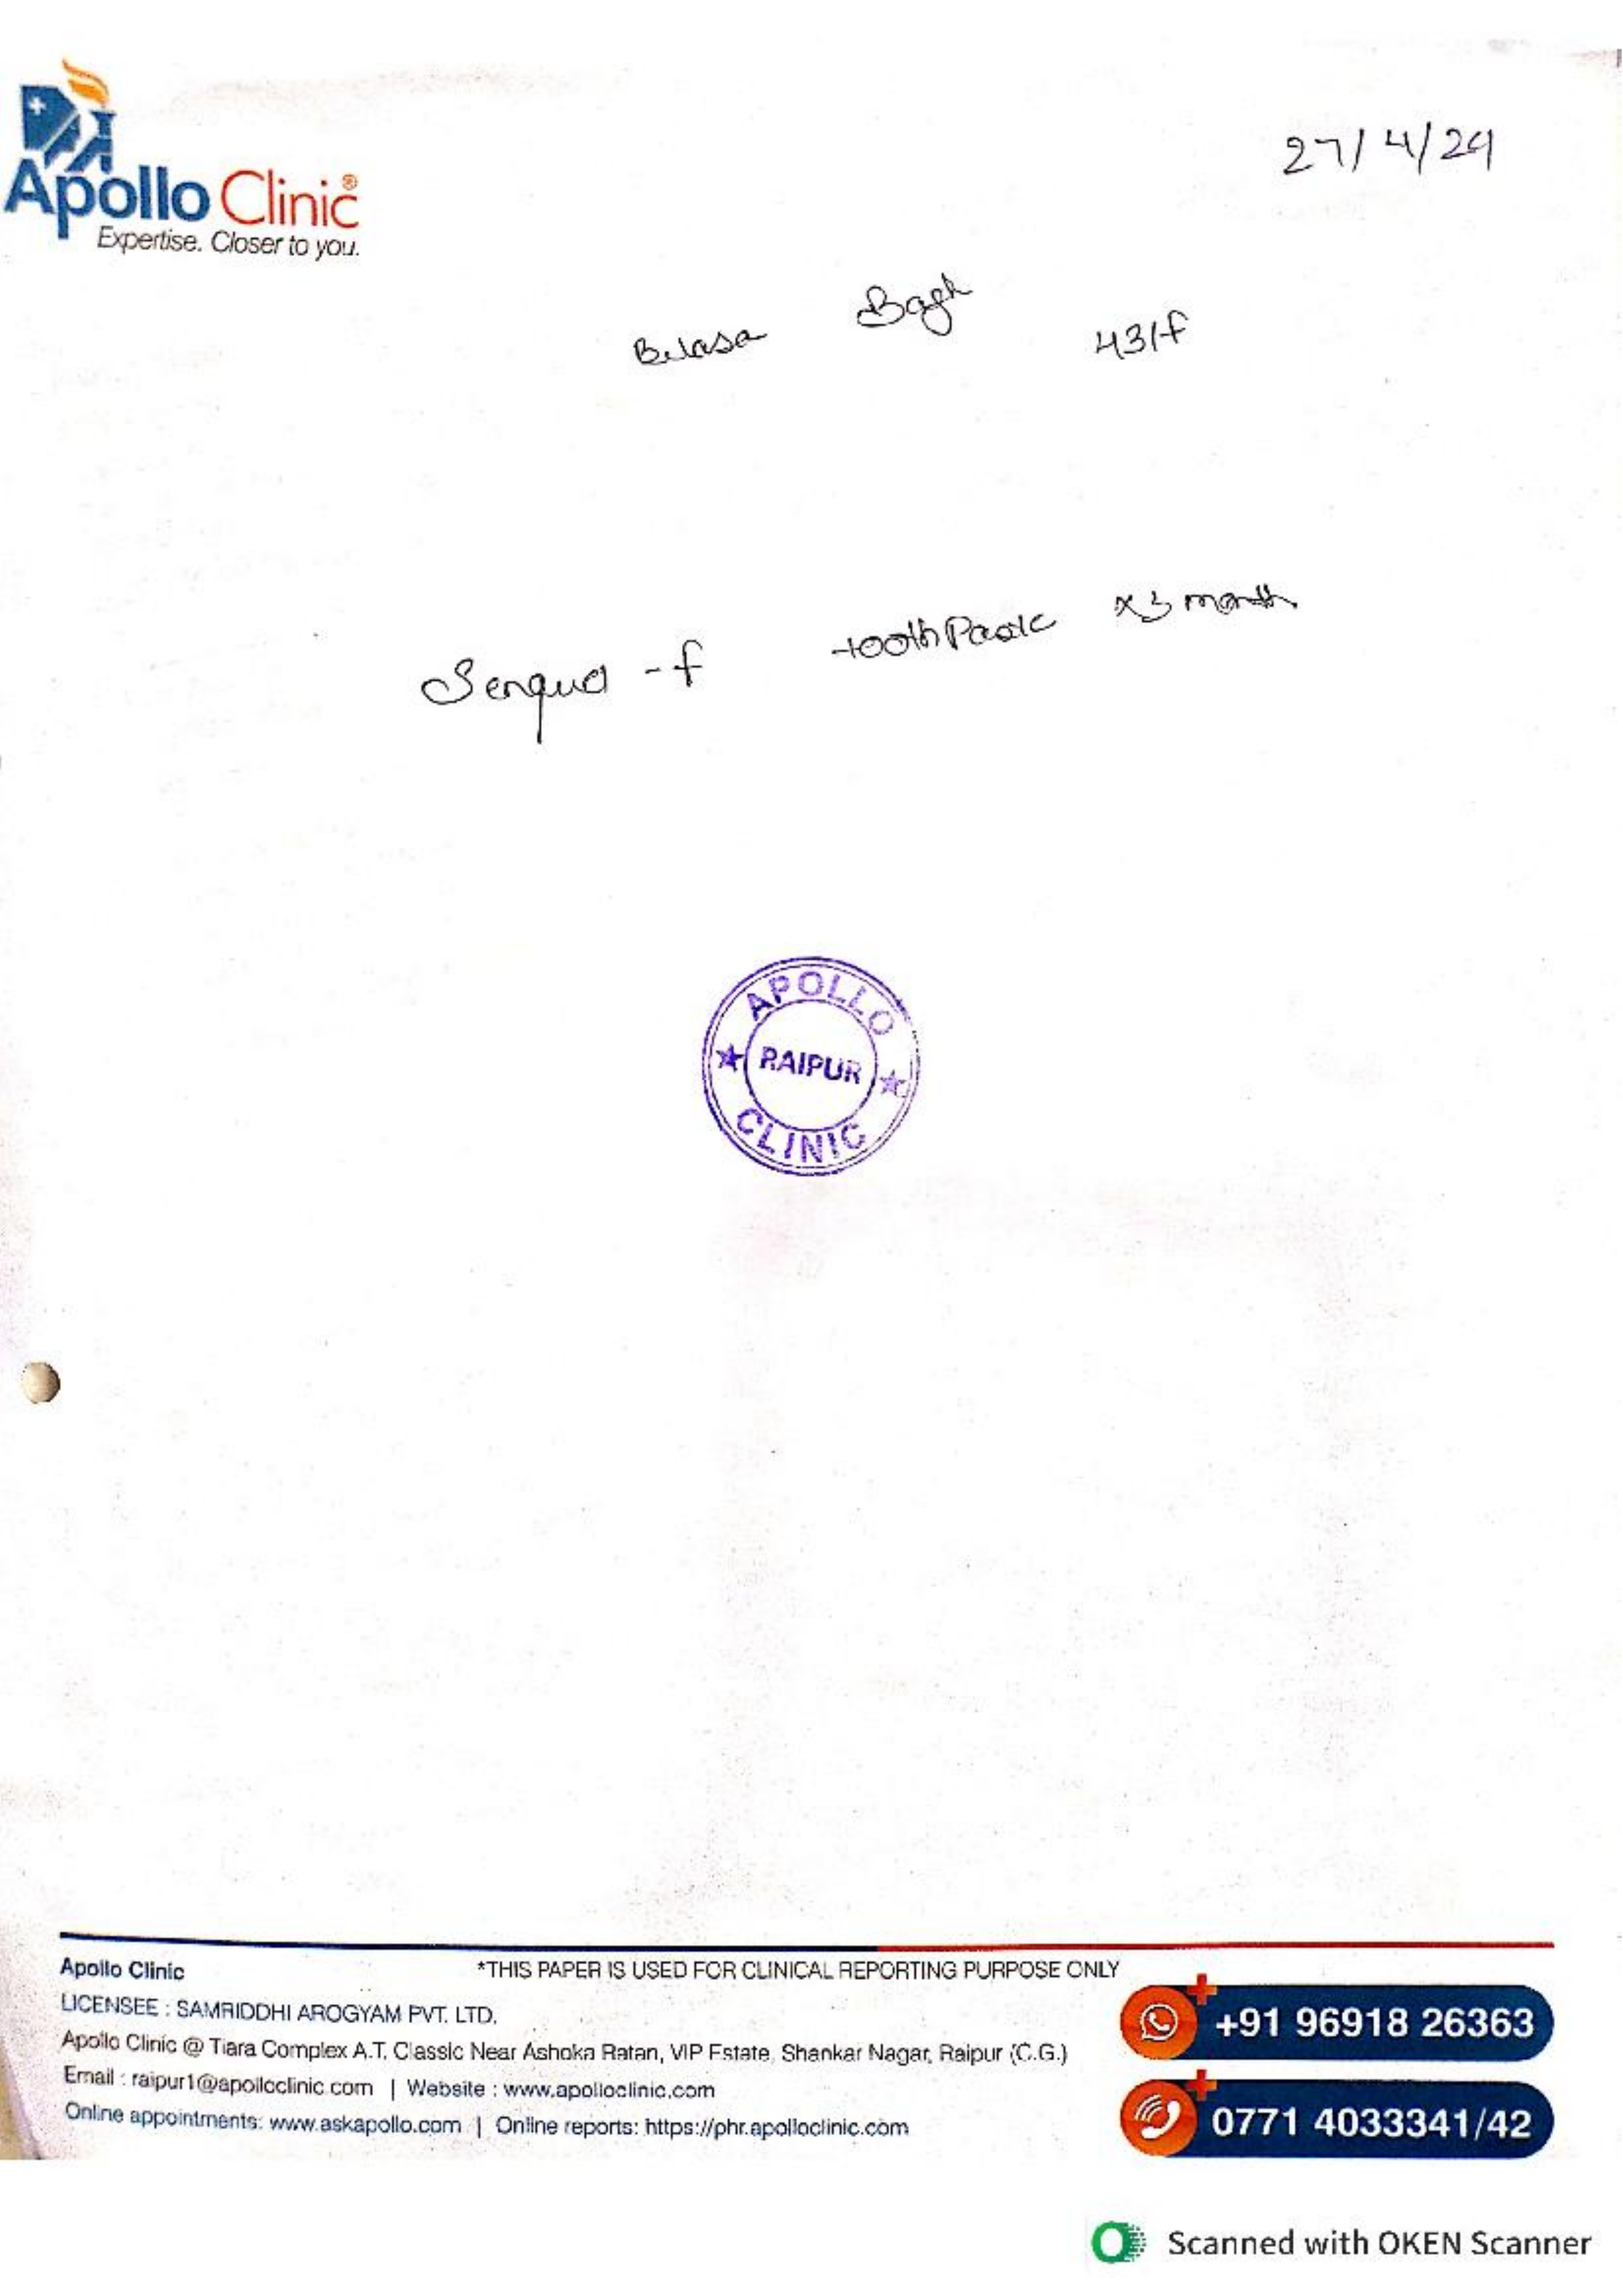 Apollo Clinic®
Expertise. Closer to you.
27/4/24
Bilasa Bagh 43/f
Senquel -f toothPaste x3 month
APOLLO
RAIPUR
CLINIC
Apollo Clinic *THIS PAPER IS USED FOR CLINICAL REPORTING PURPOSE ONLY
LICENSEE : SAMRIDDHI AROGYAM PVT. LTD.
Apollo Clinic @ Tiara Complex A.T. Classic Near Ashoka Ratan, VIP Estate, Shankar Nagar, Raipur (C.G.)
Email : raipur1@apolloclinic.com | Website : www.apolloclinic.com
Online appointments: www.askapollo.com | Online reports: https://phr.apolloclinic.com
+91 96918 26363
0771 4033341/42
Scanned with OKEN Scanner